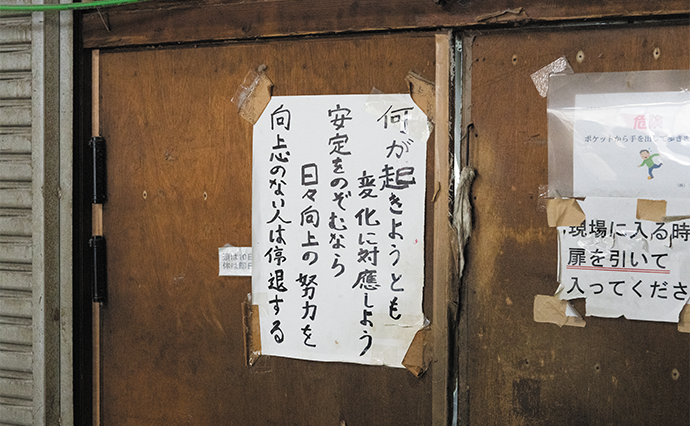 何が起きようとも
変化に対應しよう
安定をのぞむなら
日々向上の努力を
向上心のない人は停退する
危険
ポケットから手を出して歩き
現場に入る時
扉を引いて
入ってくださ